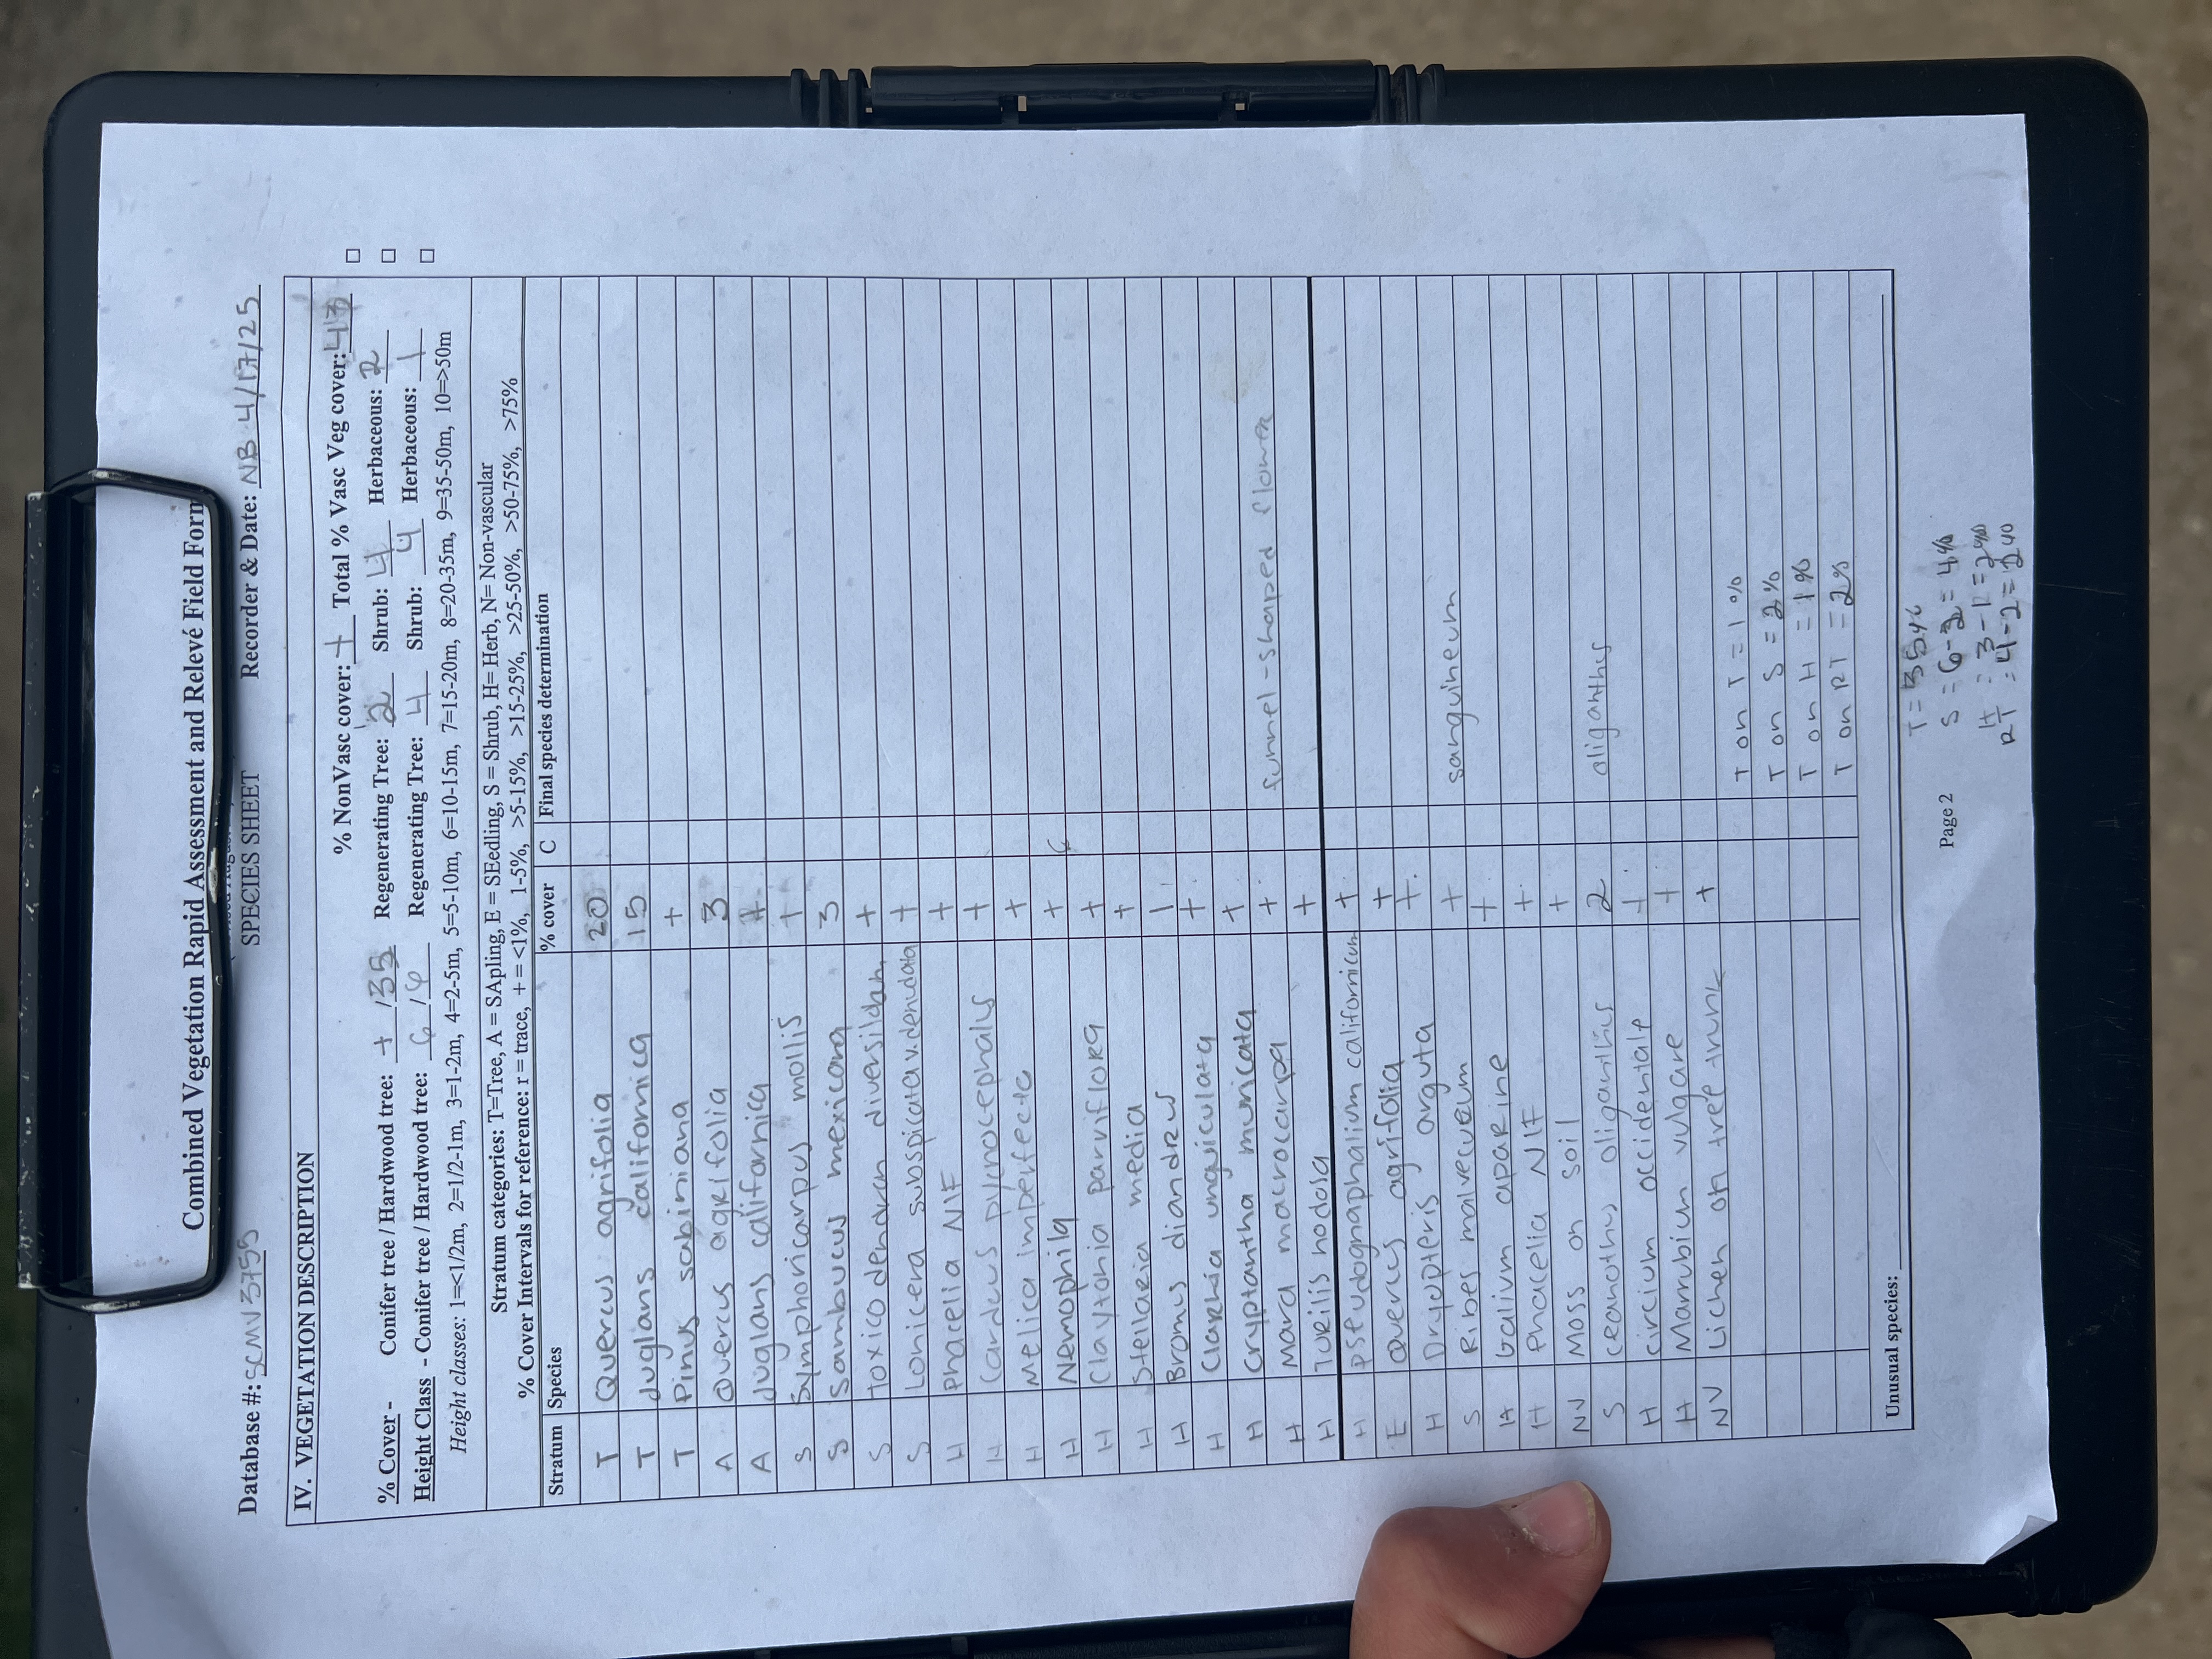 Combined Vegetation Rapid Assessment and Relevé Field Form
SPECIES SHEET
Database #: SCMV3755 Recorder & Date: NB 4/17/25
IV. VEGETATION DESCRIPTION
% NonVasc cover: + Total % Vasc Veg cover: 43
% Cover - Conifer tree / Hardwood tree: + / 35 Regenerating Tree: 2 Shrub: 4 Herbaceous: 2
Height Class - Conifer tree / Hardwood tree: 6 / 6 Regenerating Tree: 4 Shrub: 4 Herbaceous: 1
Height classes: 1=<1/2m, 2=1/2-1m, 3=1-2m, 4=2-5m, 5=5-10m, 6=10-15m, 7=15-20m, 8=20-35m, 9=35-50m, 10=>50m
Stratum categories: T=Tree, A = SApling, E = SEedling, S = Shrub, H= Herb, N= Non-vascular
% Cover Intervals for reference: r = trace, + = <1%, 1-5%, >5-15%, >15-25%, >25-50%, >50-75%, >75%
Stratum Species % cover C Final species determination
T Quercus agrifolia 20
T Juglans californica 15
T Pinus sabiniana +
A Quercus agrifolia 3
A Juglans californica +
S Symphoricarpus mollis +
S Sambucus mexicana 3
S Toxicodendron diversilobum +
S Lonicera subspicata v. denudata +
H Phacelia NIF +
H Carduus pycnocephalus +
H Melica imperfecta +
H Nemophila + C
H Claytonia parviflora +
H Stellaria media +
H Bromus diandrus 1
H Clarkia unguiculata +
H Cryptantha muricata +
H Mara macrocarpa + funnel-shaped flower
H Torilis nodosa +
H Pseudognaphalium californicum +
E Quercus agrifolia +
H Dryopteris arguta +
S Ribes malvecueum + sanguineum
H Galium aparine +
H Phacelia NIF +
NV Moss on soil +
S Ceanothus oliganthus 2 oliganthus
H Circium occidentale +
H Marrubium vulgare +
NV Lichen on tree trunk +
T on T = 1%
T on S = 2%
T on H = 1%
T on RT = 2%
Unusual species:
T = 35%
Page 2 S = 6-2 = 4%
H = 3-1 = 2%
RT = 4-2 = 2%